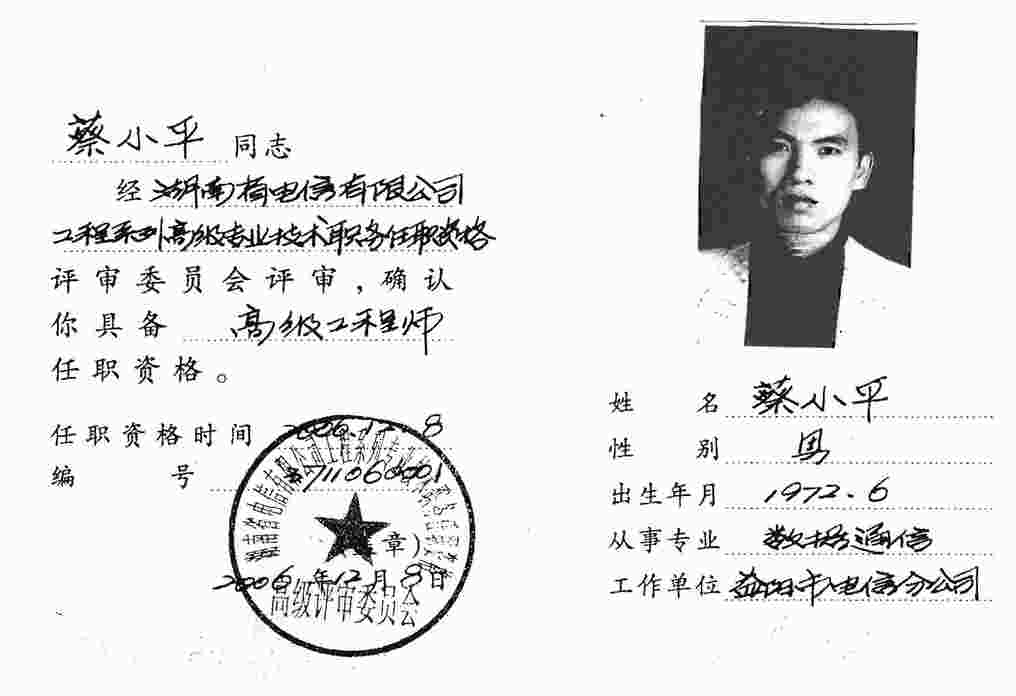 蔡小平 同志
经 湖南省电信有限公司
工程系列高级专业技术职务任职资格
评审委员会评审,确认
你具备 高级工程师
任职资格。
任职资格时间 2006.12.8
编 号 3711060001
(盖章)
2006年12月8日
高级评审委员会
姓 名 蔡小平
性 别 男
出生年月 1972.6
从事专业 数据通信
工作单位 益阳市电信分公司